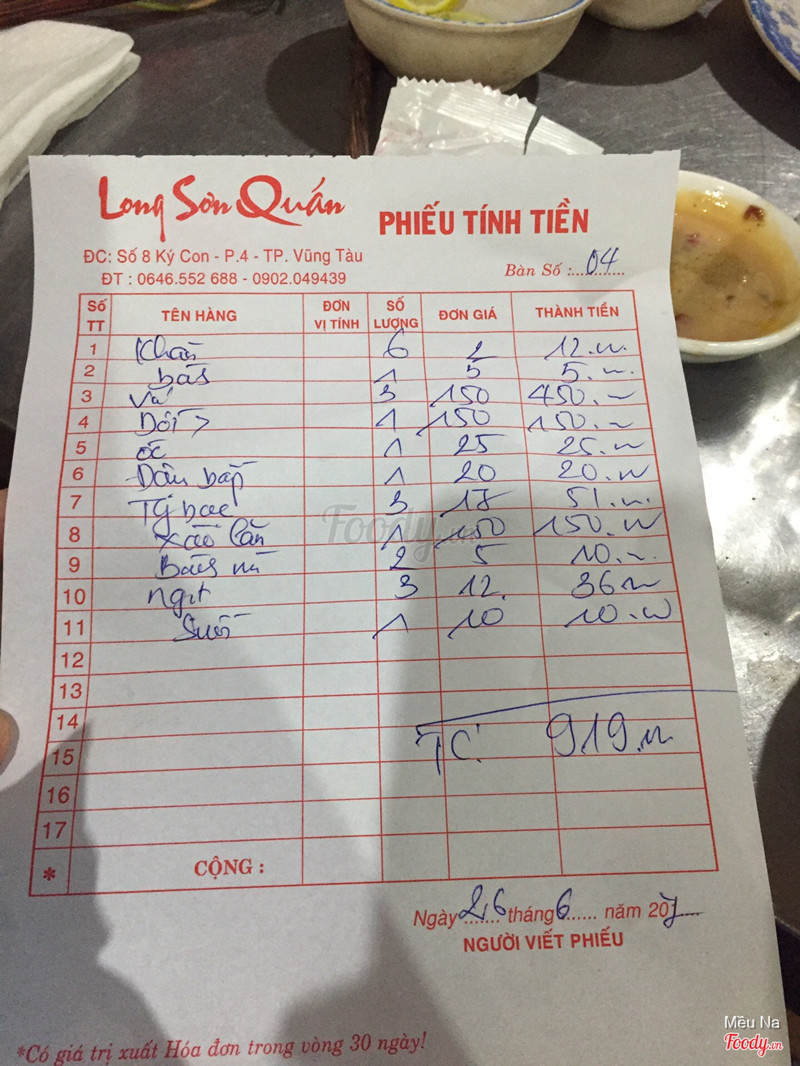 Long Sơn Quán
PHIẾU TÍNH TIỀN
ĐC: Số 8 Ký Con - P.4 - TP. Vũng Tàu
ĐT : 0646.552 688 - 0902.049439
Bàn Số : 04
Số TT TÊN HÀNG ĐƠN VỊ TÍNH SỐ LƯỢNG ĐƠN GIÁ THÀNH TIỀN
1 Khăn 6 2 12.
2 1 5 5.
3 3 150 450.
4 1 150 150.
5 ốc 1 25 25.
6 Đậu bắp 1 20 20.
7 3 17 51.
8 Xào 1 150 150.
9 2 5 10.
10 ngọt 3 12. 36
11 Suối 1 10 10.
12
13
14
15 TC. 919.
16
17
* CỘNG :
Ngày 26 tháng 6 năm 207
NGƯỜI VIẾT PHIẾU
*Có giá trị xuất Hóa đơn trong vòng 30 ngày!
Foody.vn
Mều Na
Foody.vn